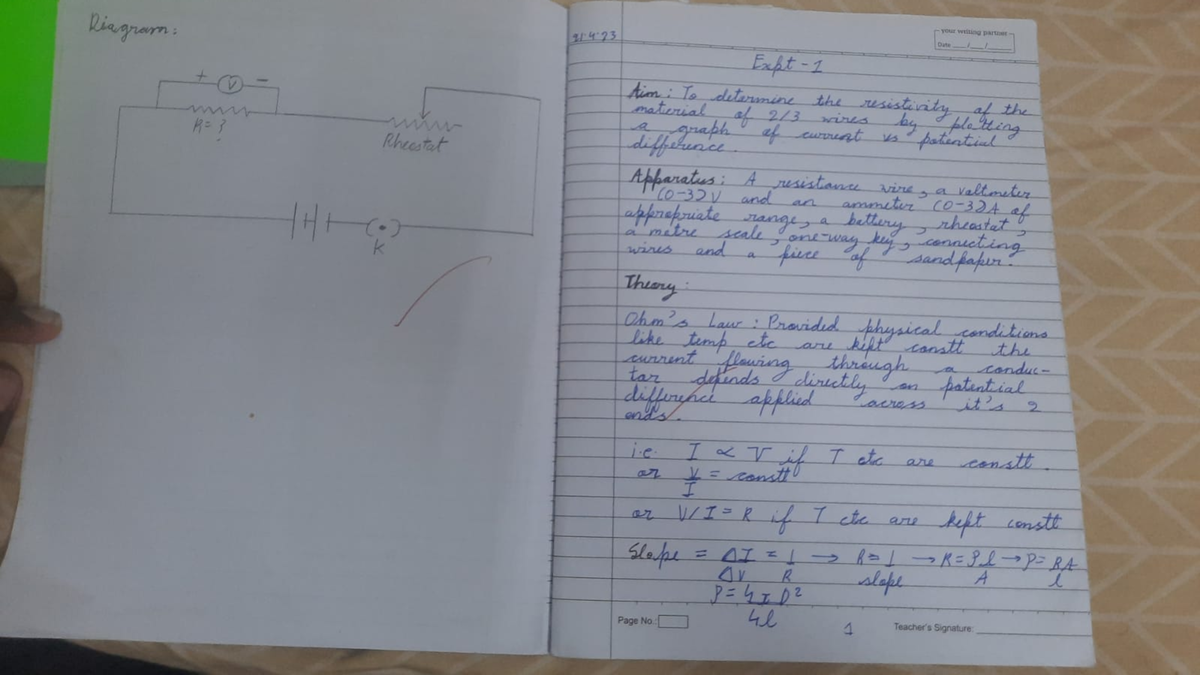 Diagram:
+ V -
R= ?
Rheostat
K
21.4.23
your writing partner
Date ___/___/___
Expt - 1
Aim : To determine the resistivity of the
material of 2/3 wires by plotting
a graph of current vs potential
difference.
Apparatus : A resistance wire, a voltmeter
(0-3)V and an ammeter (0-3)A of
appropriate range, a battery, rheostat,
a metre scale, one-way key, connecting
wires and a piece of sandpaper.
Theory :
Ohm's Law : Provided physical conditions
like temp etc are kept constt the
current flowing through a conduc-
tor depends directly on potential
difference applied across it's 2
ends.
i.e. I ∝ V if T etc are constt.
or V/I = constt
or V/I = R if T etc are kept constt
Slope = ΔI/ΔV = 1/R → R = 1/slope → R = ρl/A → ρ = RA/l
Page No.:
1
Teacher's Signature: